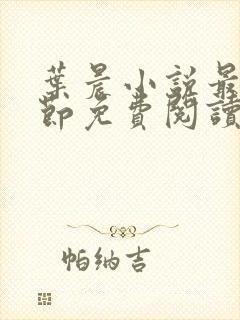 葉晨小說最
節免費閱讀
帕纳吉